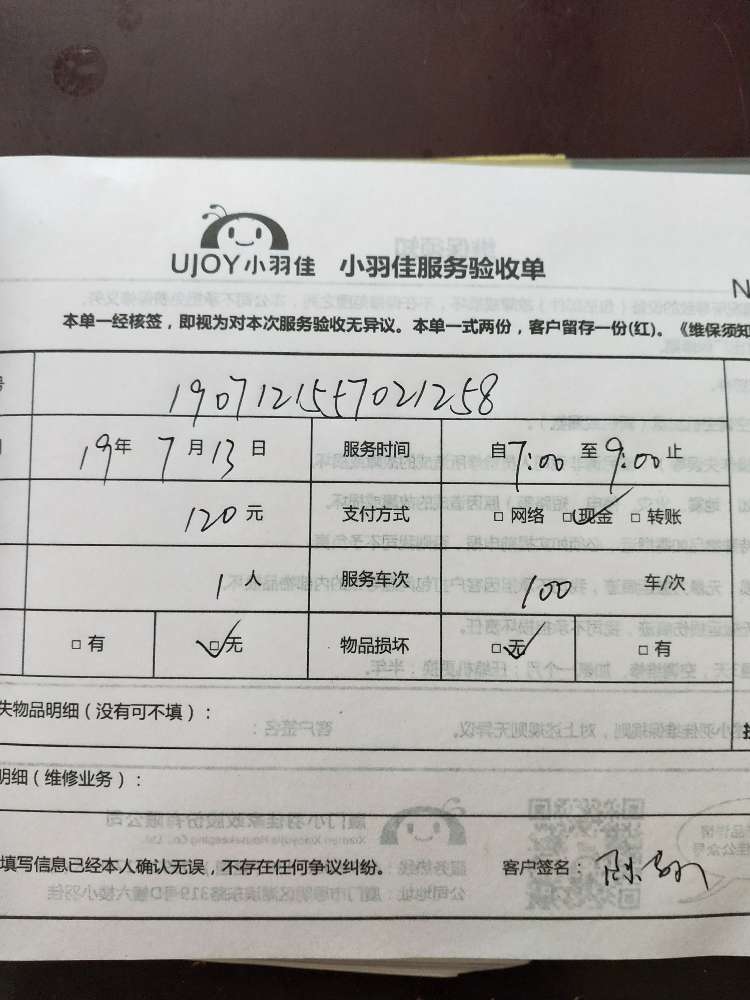 UJOY小羽佳 小羽佳服务验收单
N
本单一经核签，即视为对本次服务验收无异议。本单一式两份，客户留存一份(红)。《维保须知
号 1907121557021258
19年 7月13日 服务时间 自7:00至9:00止
120元 支付方式 □网络 □现金 □转账
1人 服务车次 100 车/次
□有 □无 物品损坏 □无 □有
失物品明细（没有可不填）：
明细（维修业务）：
填写信息已经本人确认无误，不存在任何争议纠纷。 客户签名：